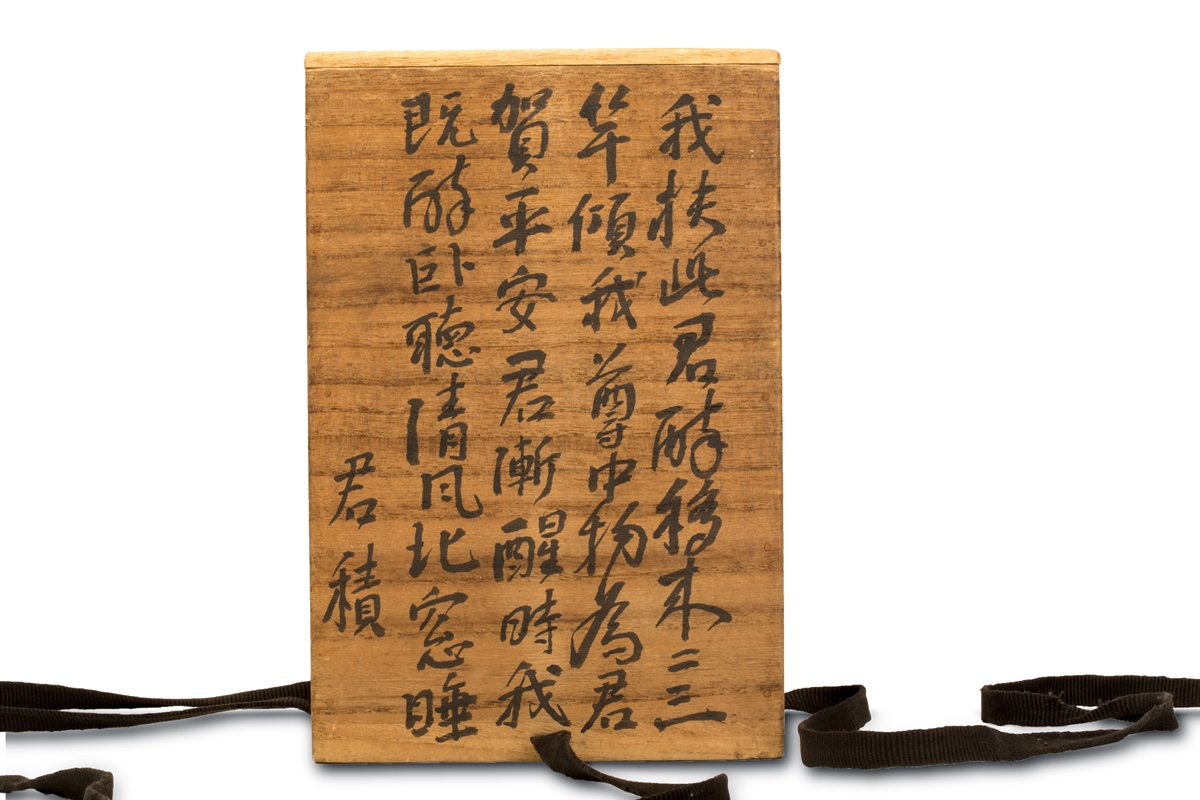 我扶此君醉移来二三
竿傾我尊中物為君
賀平安君漸醒時我
既醉卧聽清風北窓睡
君積